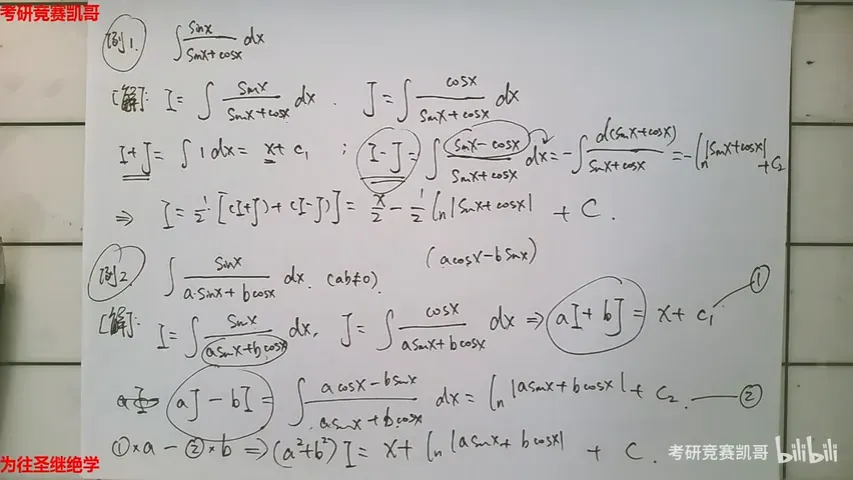 考研竞赛凯哥
例1. ∫ sinx/(sinx+cosx) dx
[解]: I = ∫ sinx/(sinx+cosx) dx. J = ∫ cosx/(sinx+cosx) dx
I+J = ∫ 1 dx = x + c₁ ; I-J = ∫ (sinx-cosx)/(sinx+cosx) dx = -∫ d(sinx+cosx)/(sinx+cosx) = -ln|sinx+cosx| + C₂
⇒ I = 1/2·[(I+J)+(I-J)] = x/2 - 1/2 ln|sinx+cosx| + C.
例2. ∫ sinx/(a·sinx+bcosx) dx. (ab≠0). (acosx-bsinx)
[解]: I = ∫ sinx/(asinx+bcosx) dx, J = ∫ cosx/(asinx+bcosx) dx ⇒ aI+bJ = x + c₁ ①
aJ-bI = ∫ (acosx-bsinx)/(asinx+bcosx) dx = ln|asinx+bcosx| + C₂. ②
①×a - ②×b ⇒ (a²+b²) I = x + ln|asinx+bcosx| + C.
为往圣继绝学
考研竞赛凯哥 bilibili